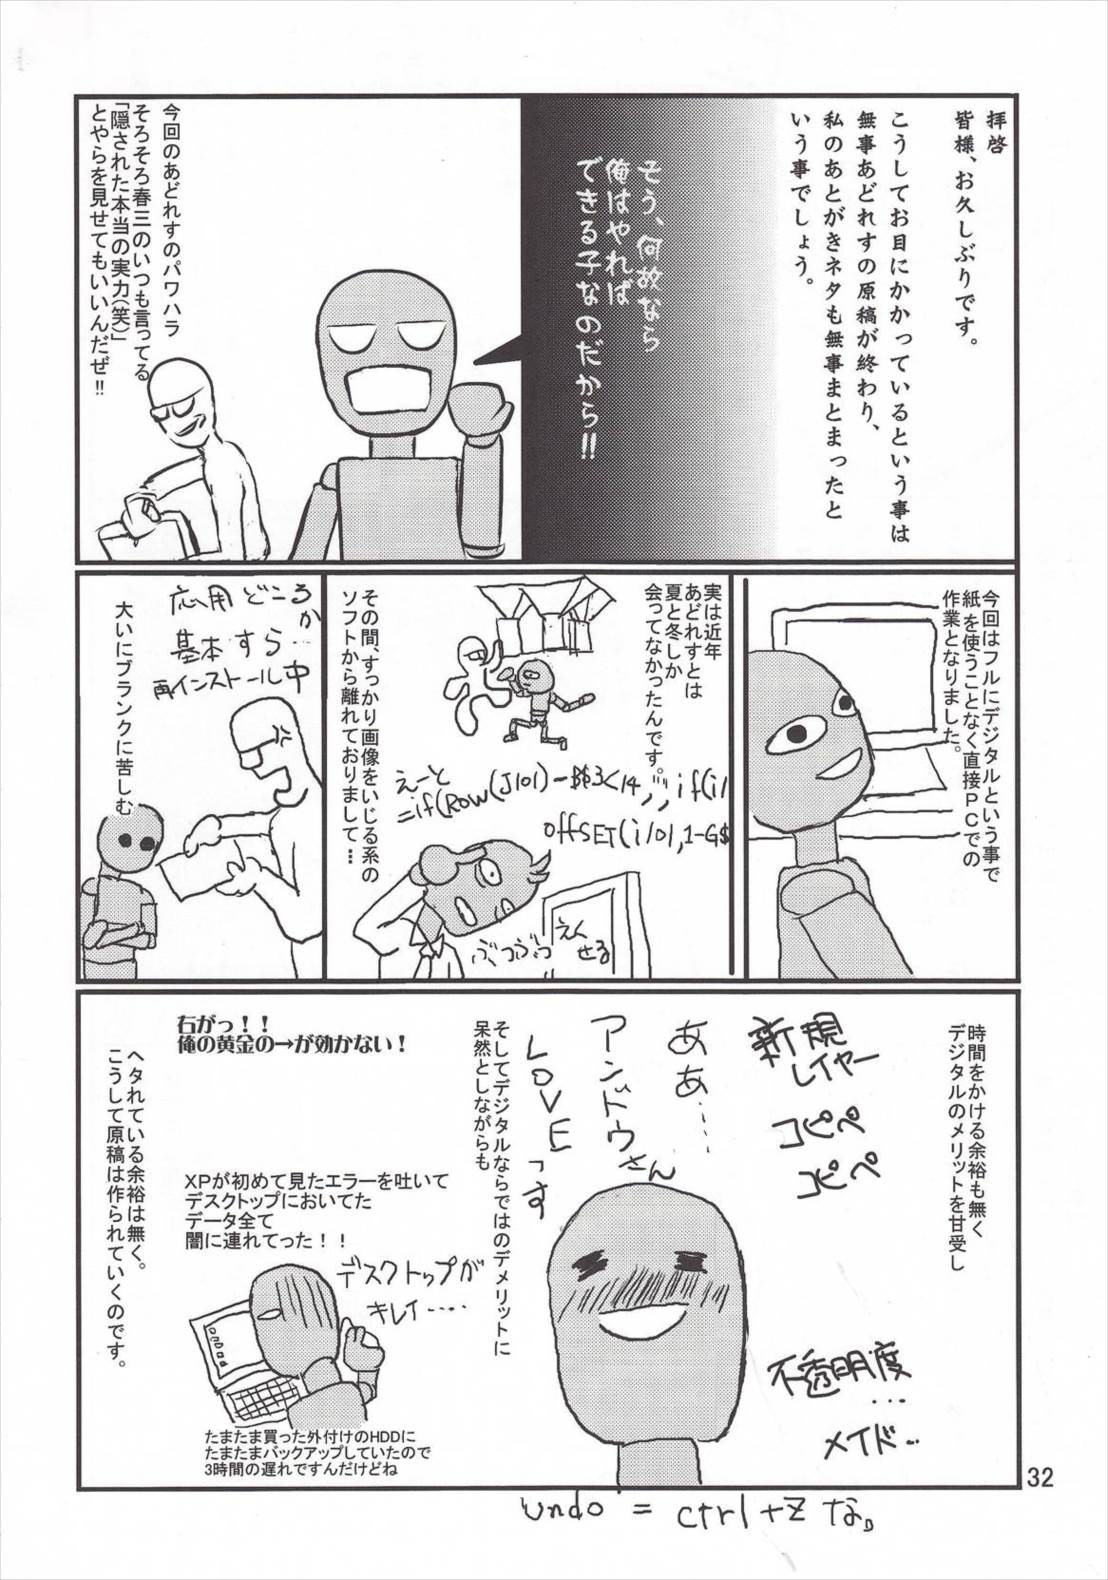 拝啓
皆様、お久しぶりです。
こうしてお目にかかっているという事は
無事あどれすの原稿が終わり、
私のあとがきネタも無事まとまったと
いう事でしょう。
そう、何故なら
俺はやれば
できる子なのだから!!
今回のあどれすのパワハラ
そろそろ春三のいつも言ってる
「隠された本当の実力(笑)」
とやらを見せてもいいんだぜ!!
今回はフルにデジタルという事で
紙を使うことなく直接PCでの
作業となりました。
実は近年
あどれすとは
夏と冬しか
会ってなかったんです。
えーと
=if(ROW(J101)-B$3<14,"",if(i1
OffSET(i101,1-G$
ぶつぶつ
えく
せる
その間、すっかり画像をいじる系の
ソフトから離れておりまして…
応用どころか
基本すら…
再インストール中
大いにブランクに苦しむ
時間をかける余裕も無く
デジタルのメリットを甘受し
新規
レイヤー
コピペ
コピペ
ああ…
アンドウさん
LOVEっす
不透明度
…
メイド…
そしてデジタルならではのデメリットに
呆然としながらも
右がっ!!
俺の黄金の→が効かない!
XPが初めて見たエラーを吐いて
デスクトップにおいてた
データ全て
闇に連れてった!!
デスクトップが
キレイ……
たまたま買った外付けのHDDに
たまたまバックアップしていたので
3時間の遅れですんだけどね
ヘタれている余裕は無く。
こうして原稿は作られていくのです。
32
undo = ctrl+Z な。